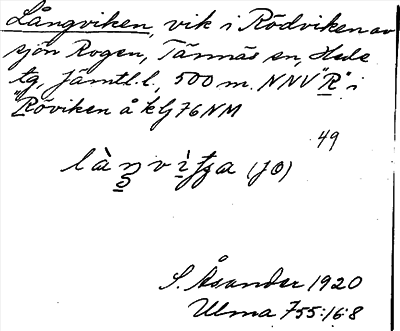 Långviken, vik i Rödviken av
sjön Rogen, Tännäs sn, Hede
tg, Jämtl. l., 500 m. NNV "R" i
"Röviken å kbl 76 NM
49
(JO)
S. Åsander 1920
Ulma 755:16:8